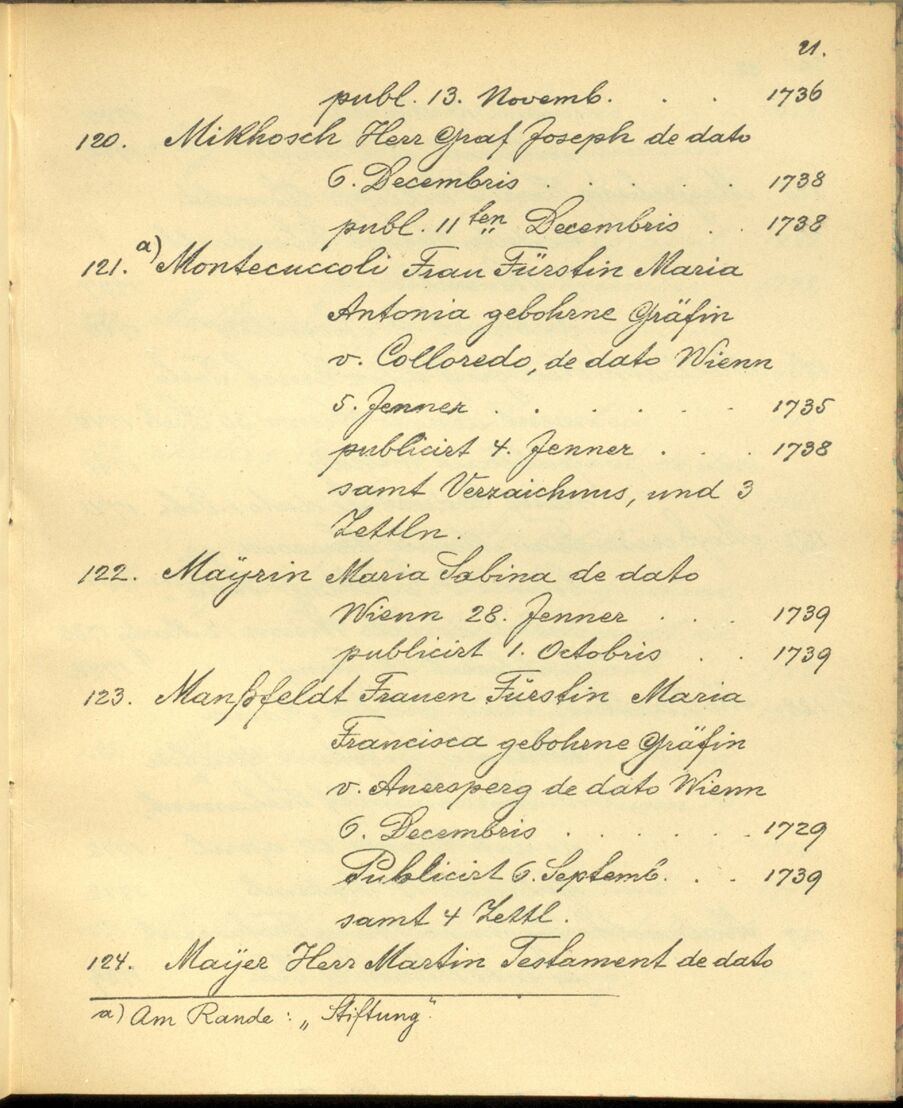 21.
publ. 13. Novemb. . . 1736
120. Mikhosch Herr Graf Joseph de dato
6. Decembris . . . . 1738
publ. 11ten Decembris . . 1738
121. a) Montecuccoli Frau Fürstin Maria
Antonia gebohrne Gräfin
v. Colloredo, de dato Wienn
5. Jenner . . . . . . 1735
publicirt 4. Jenner . . . 1738
samt Verzaichnus, und 3
Zettln.
122. Maÿrin Maria Sabina de dato
Wienn 28. Jenner . . . 1739
publicirt 1. Octobris . . 1739
123. Manßfeldt Frauen Fürstin Maria
Francisca gebohrne Gräfin
v. Auersperg de dato Wienn
6. Decembris . . . . . 1729
Publicirt 6. Septemb. . . 1739
samt 4 Zettl.
124. Maÿer Herr Martin Testament de dato
a) Am Rande: „Stiftung“